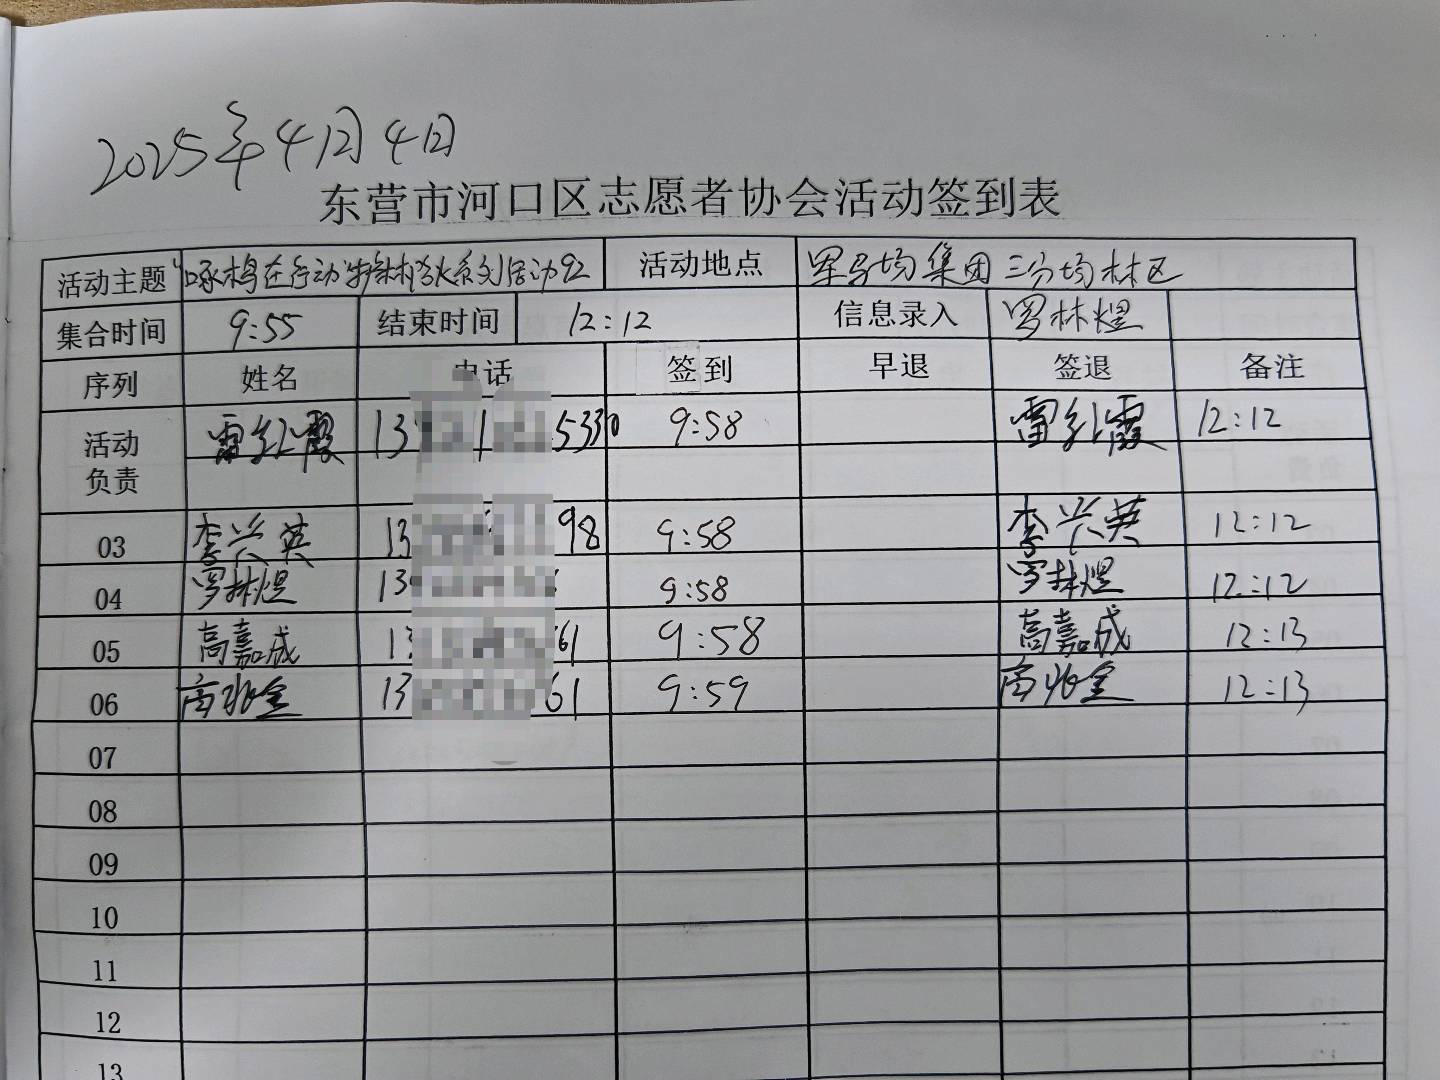 2025年4月4日
东营市河口区志愿者协会活动签到表
活动主题 "啄木鸟在行动"护林防火系列活动92 活动地点 军马场集团三分场林区
集合时间 9:55 结束时间 12:12 信息录入 罗林煜
序列 姓名 电话 签到 早退 签退 备注
活动负责 雷红霞 13 5330 9:58 雷红霞 12:12
03 李兴英 13 98 9:58 李兴英 12:12
04 罗林煜 13 9:58 罗林煜 12:12
05 高嘉成 13 61 9:58 高嘉成 12:13
06 高兆金 13 61 9:59 高兆金 12:13
07
08
09
10
11
12
13